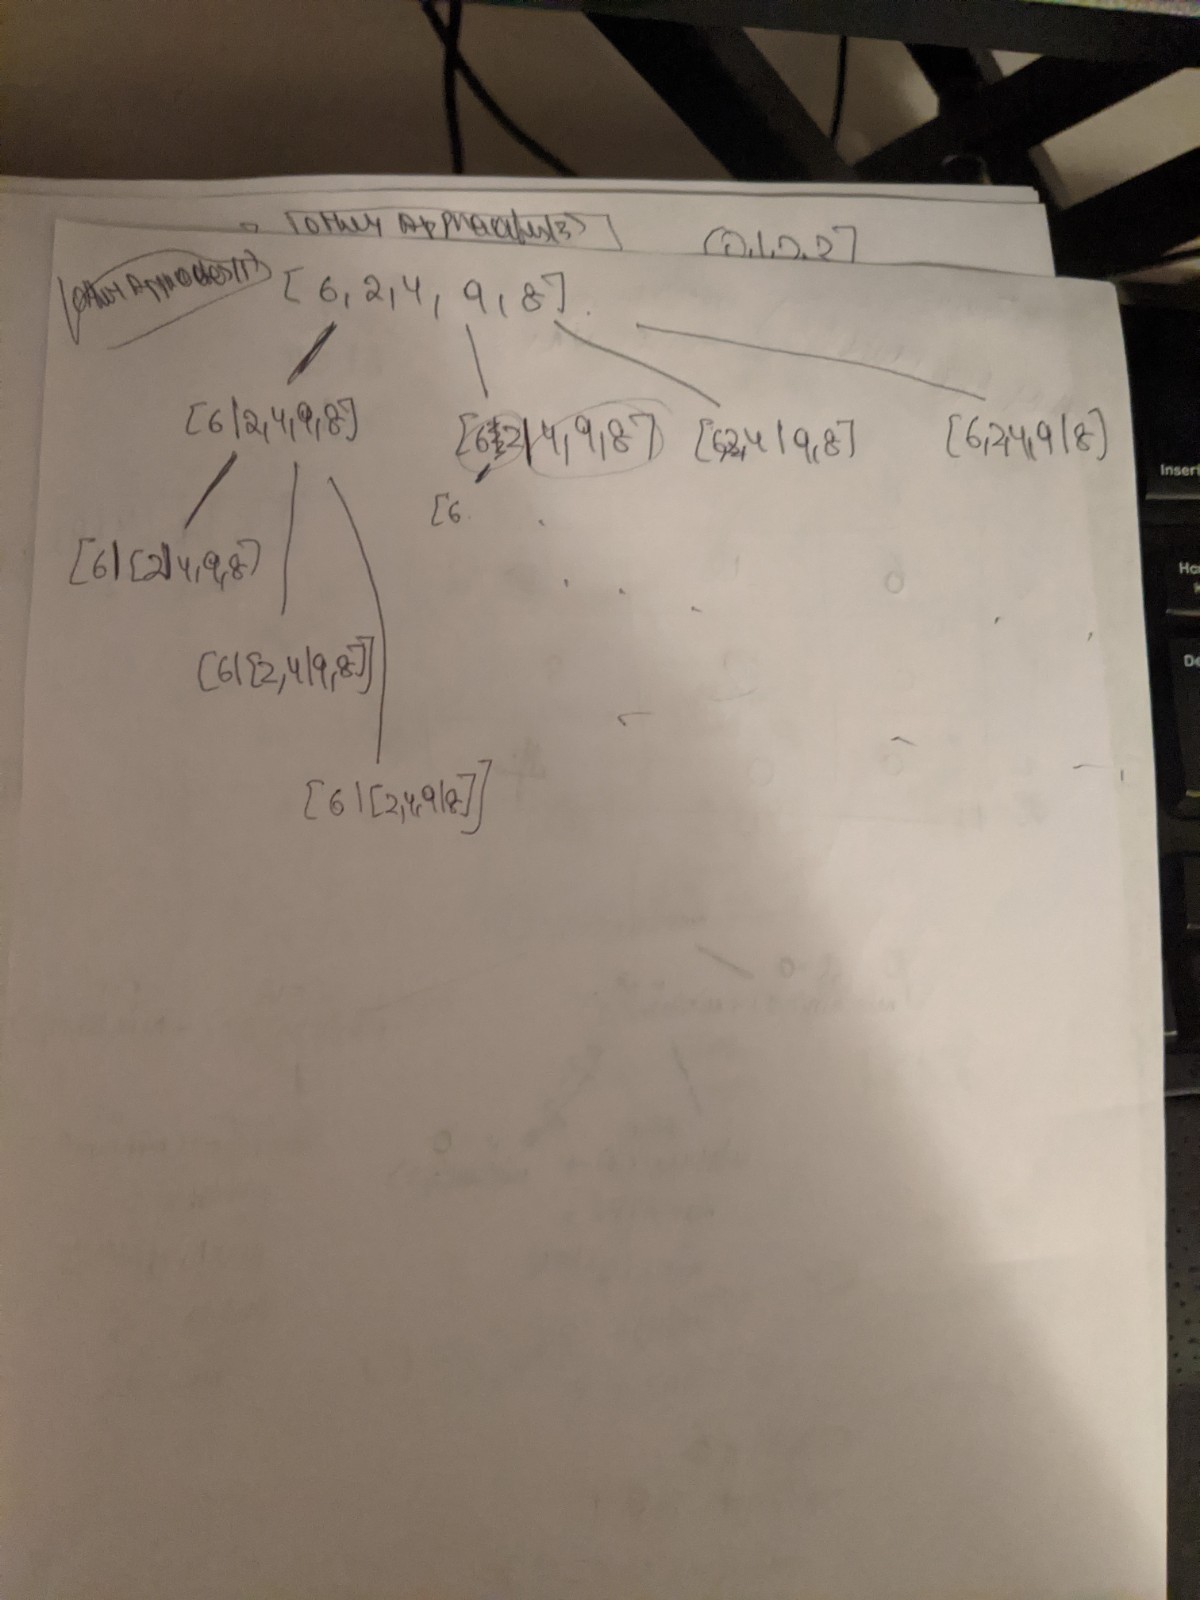 [other Approaches(3)]
[0,1,2,2]
[other Approaches(1)]
[6, 2, 4, 9, 8]
[6|2,4,9,8]
[6,2|4,9,8]
[6,2,4|9,8]
[6,2,4,9|8]
[6
[6|[2|4,9,8]
[6|[2,4|9,8]]
[6|[2,4,9|8]]
Insert